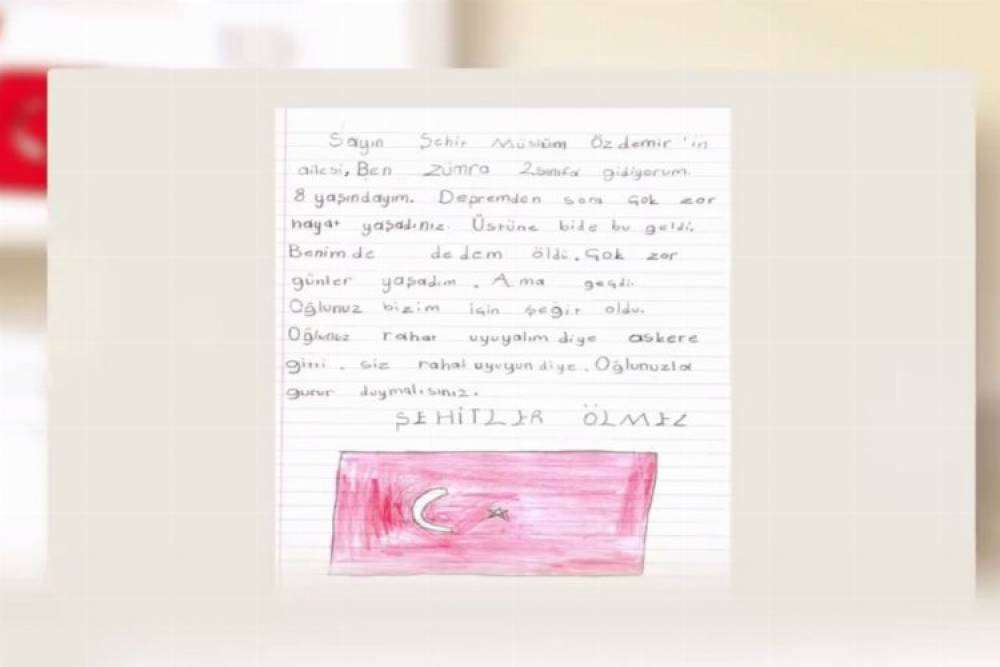 Sayın Şehit Müslüm Özdemir'in
ailesi, Ben Zümra 2.sınıfa gidiyorum.
8 yaşındayım. Depremden sora çok zor
hayat yaşadınız. Üstüne bide bu geldi.
Benim de dedem öldü. Çok zor
günler yaşadım. Ama geçdi.
Oğlunuz bizim için şeğit oldu.
Oğlunuz rahat uyuyalım diye askere
gitti. siz rahat uyuyun diye. Oğlunuzla
gurur duymalısınız.
ŞEHİTLER ÖLMEZ